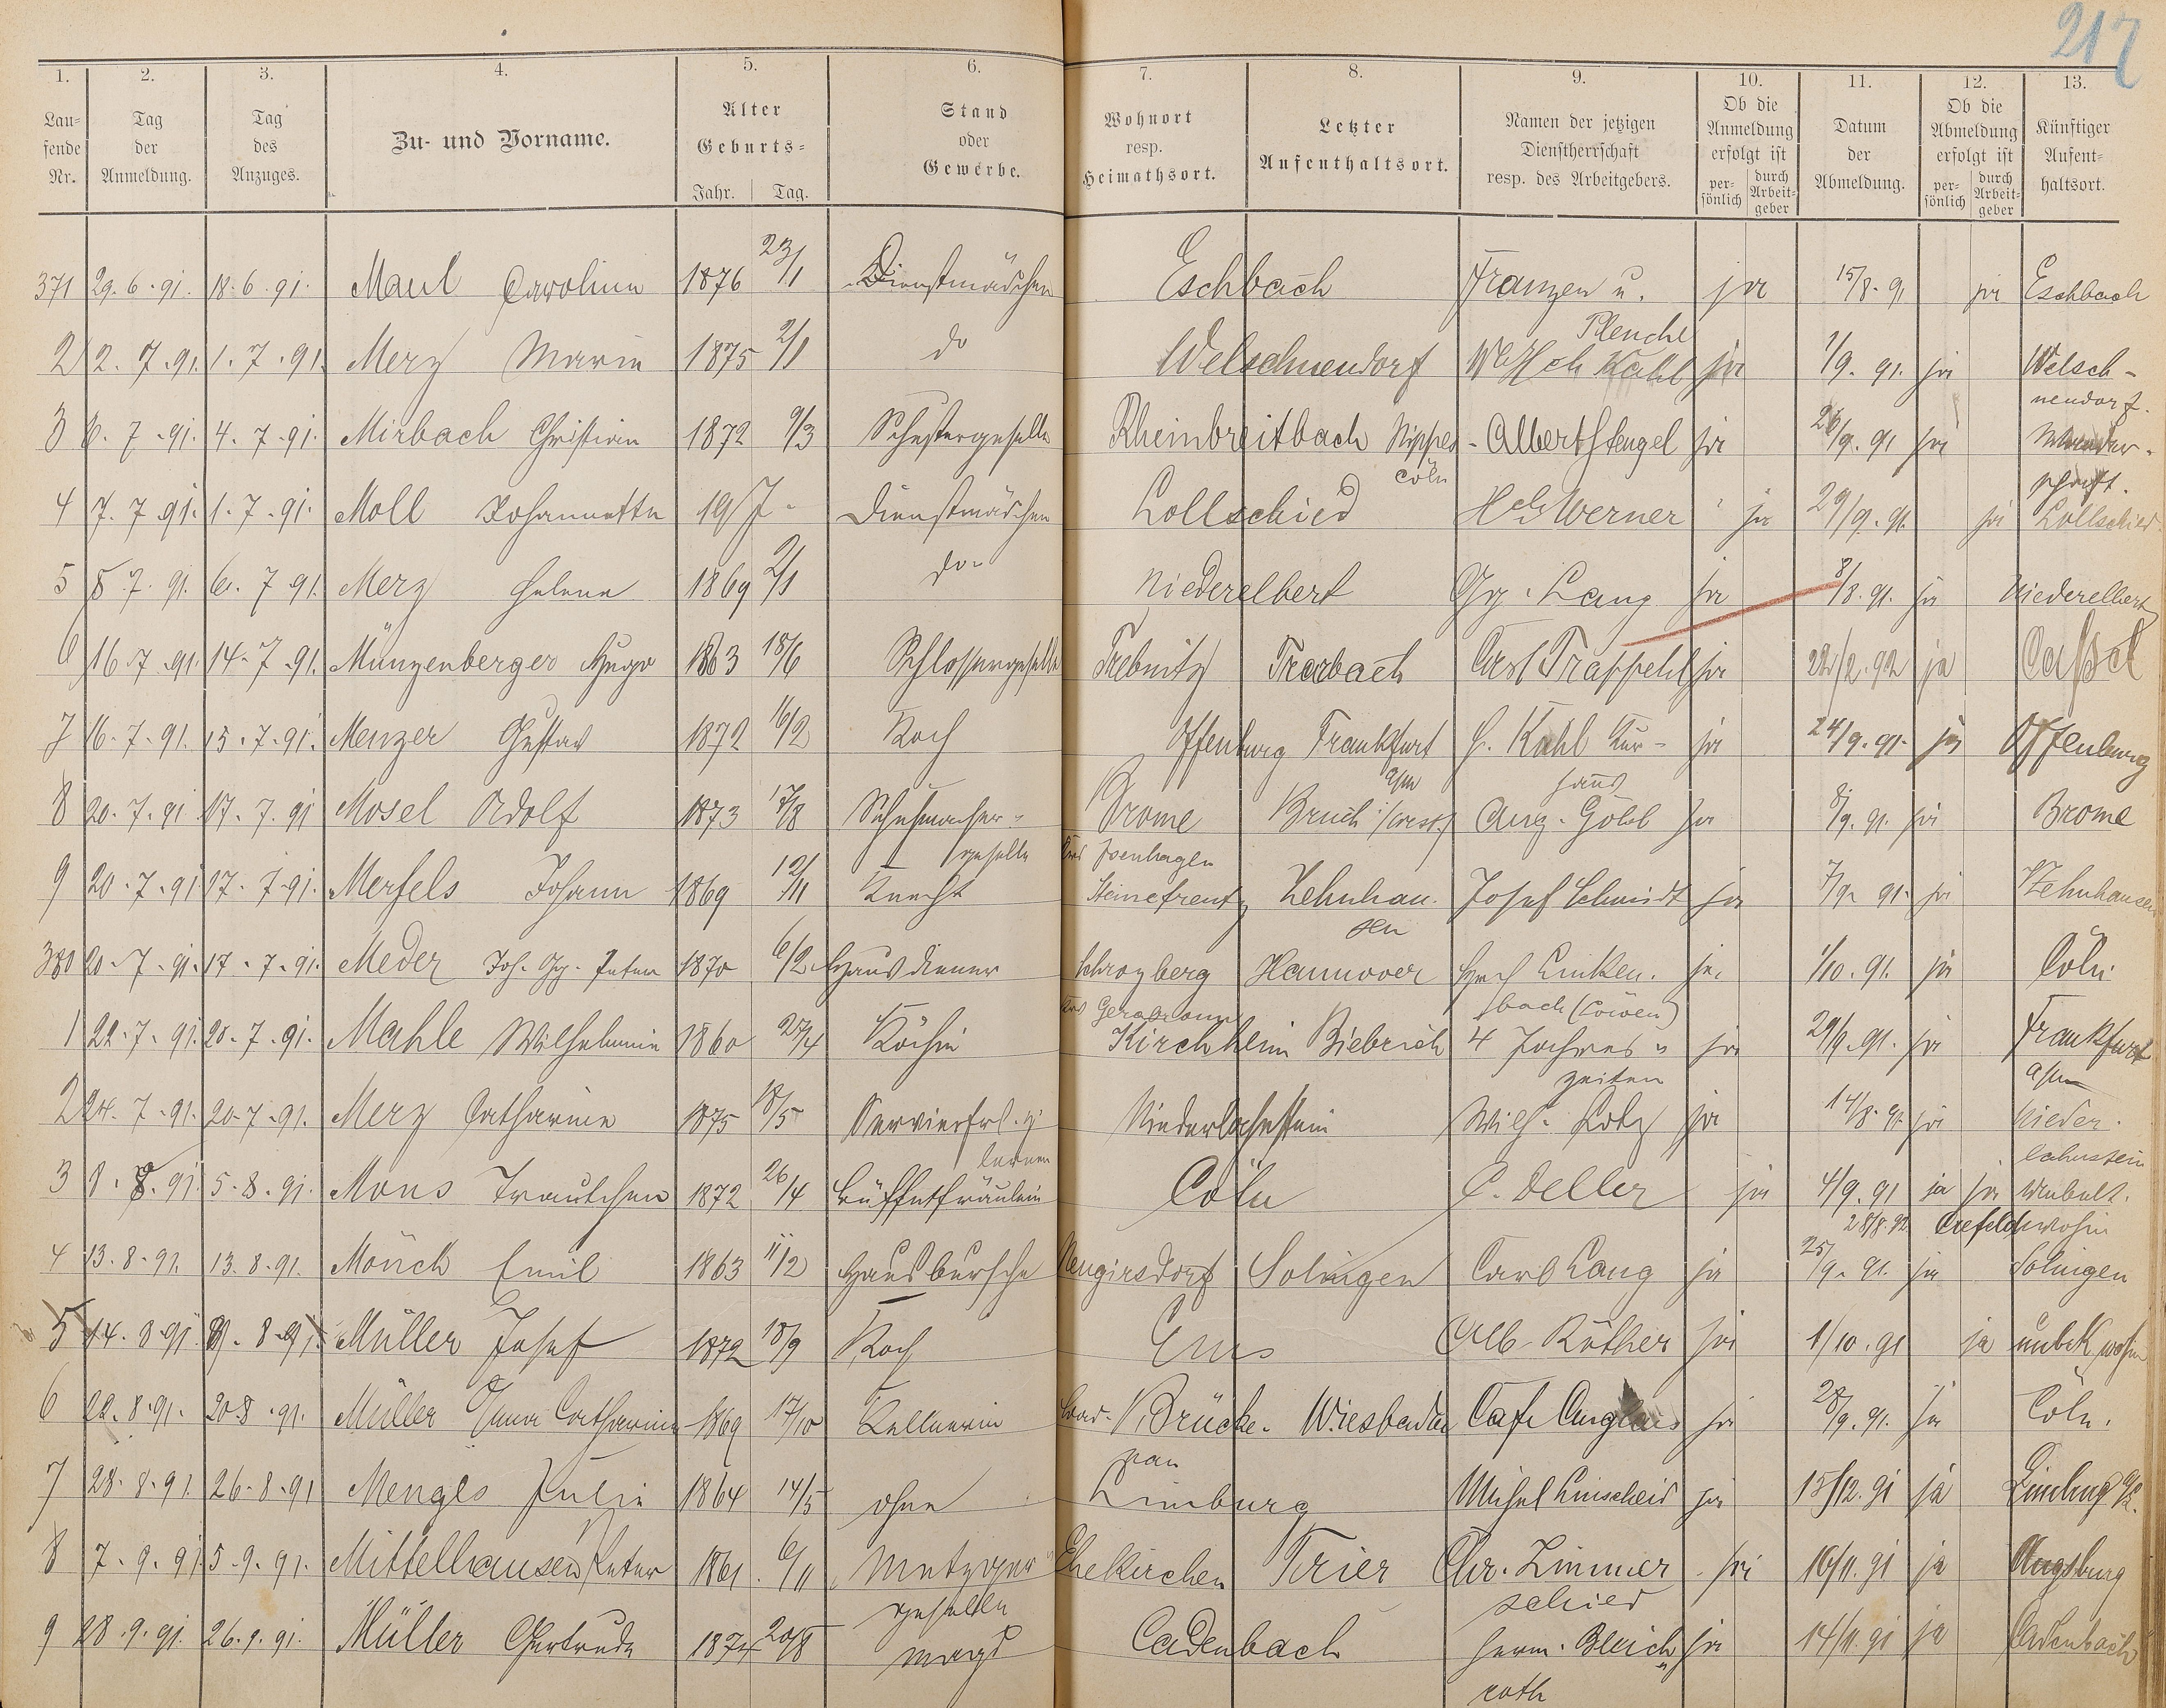 217
1. 2. 3. 4. 5. 6. 7. 8. 9. 10. 11. 12. 13.
Lau=fende Nr. Tag der Anmeldung. Tag des Anzuges. Zu- und Vorname. Alter Geburts= Jahr. Tag. Stand oder Gewerbe. Wohnort resp. Heimathsort. Letzter Aufenthaltsort. Namen der jetzigen Dienstherrschaft resp. des Arbeitgebers. Ob die Anmeldung erfolgt ist per=sönlich durch Arbeit=geber Datum der Abmeldung. Ob die Abmeldung erfolgt ist per=sönlich durch Arbeit=geber Künftiger Aufent=haltsort.
371 29.6.91. 18.6.91. Maul Caroline 1876 23/1 Dienstmädchen Eschbach Franzen u. ja 15/8.91 ja Eschbach
Plenchl
2 2.7.91. 1.7.91. Merz Marie 1875 2/1 do Welschneudorf Kahl ja 1/9.91. ja Welsch-
neudorf.
3 6.7.91. 4.7.91. Mirbach Christian 1872 9/3 Schustergeselle Rheinbreitbach Nippes- Albert Stengel ja 26/9.91 ja Wander-
Cöln schaft.
4 7.7.91. 1.7.91. Moll Johannette 19 J. Dienstmädchen Lollschied Hch Werner ja 29/9.91. ja Lollschied
5 8.7.91. 6.7.91. Merz Helene 1869 2/1 do- Niederelbert Gg. Lang ja 8/8.91. ja Niederelbert
6 16.7.91. 14.7.91. Münzenberger Hugo 1863 18/6 Schlossergeselle Trebnitz Trarbach Carl Trappehl ja 22/2.92 ja Caßel
7 16.7.91. 15.7.91. Menzer Gustav 1872 16/2 Koch Offenburg Frankfurt H. Kahl Kur- ja 24/9.91. ja Offenburg
a/M haus
8 20.7.91 17.7.91 Mosel Adolf 1873 17/8 Schuhmacher- Brome Bruch i/West. Aug. Göbel ja 8/9.91. ja Brome
geselle Isenhagen
9 20.7.91 17.7.91. Merfels Johann 1869 12/11 Knecht Steinefrenz Zehnhau- Josef Schmidt ja 7/9.91. ja Zehnhausen
sen
380 20.7.91. 17.7.91. Meder Joh. Gg. Peter 1870 6/2 Hausdiener Schrozberg Hannover Linken- ja. 1/10.91. ja Cöln.
Gerabronn bach (Löwen)
1 22.7.91. 20.7.91. Mahle Wilhelmine 1860 27/4 Köchin Kirchheim Biebrich 4 Jahres- ja 29/9.91. ja Frankfurt
zeiten a/M
2 24.7.91. 20.7.91. Merz Catharine 1875 18/5 Servierfrl. z. Niederlahnstein Wilh. Lotz ja 14/8.91. ja Nieder-
lernen lahnstein
3 8.8.91. 5.8.91. Mons Traudchen 1872 26/4 Büffetfräulein Cöln C. Deller ja 4/9.91 ja ja unbekt.
28/8.92. Crefeld wohin
4 13.8.91. 13.8.91. Mönch Emil 1863 11/2 Hausbursche Neugirsdorf Solingen Carl Lang ja 25/9.91. ja Solingen
5 14.8.91. 8.91. Müller Josef 1872 18/9 Koch Ems Alb. Röther ja 1/10.91 ja unbek. wohin
6 22.8.91. 20.8.91. Müller Anna Catharine 1869 17/10 Kellnerin Brücke. Wiesbaden Café Anglais ja 28/9.91. ja Cöln.
7 28.8.91. 26.8.91 Menges Julie 1864 14/5 ohne Limburg Michel Linscheid ja 15/12.91 ja Limburg a/L.
8 7.9.91 5.9.91. Mittelhausen Peter 1861. 6/11 Metzger Ehekirchen Trier Chr. Zimmer ja 16/11.91 ja Augsburg
gesellen schied
9 28.9.91. 26.9.91. Müller Gertrude 1874 20/8 Magd Cadenbach Herm. Bleich ja 14/11.91 ja Cadenbach
roth